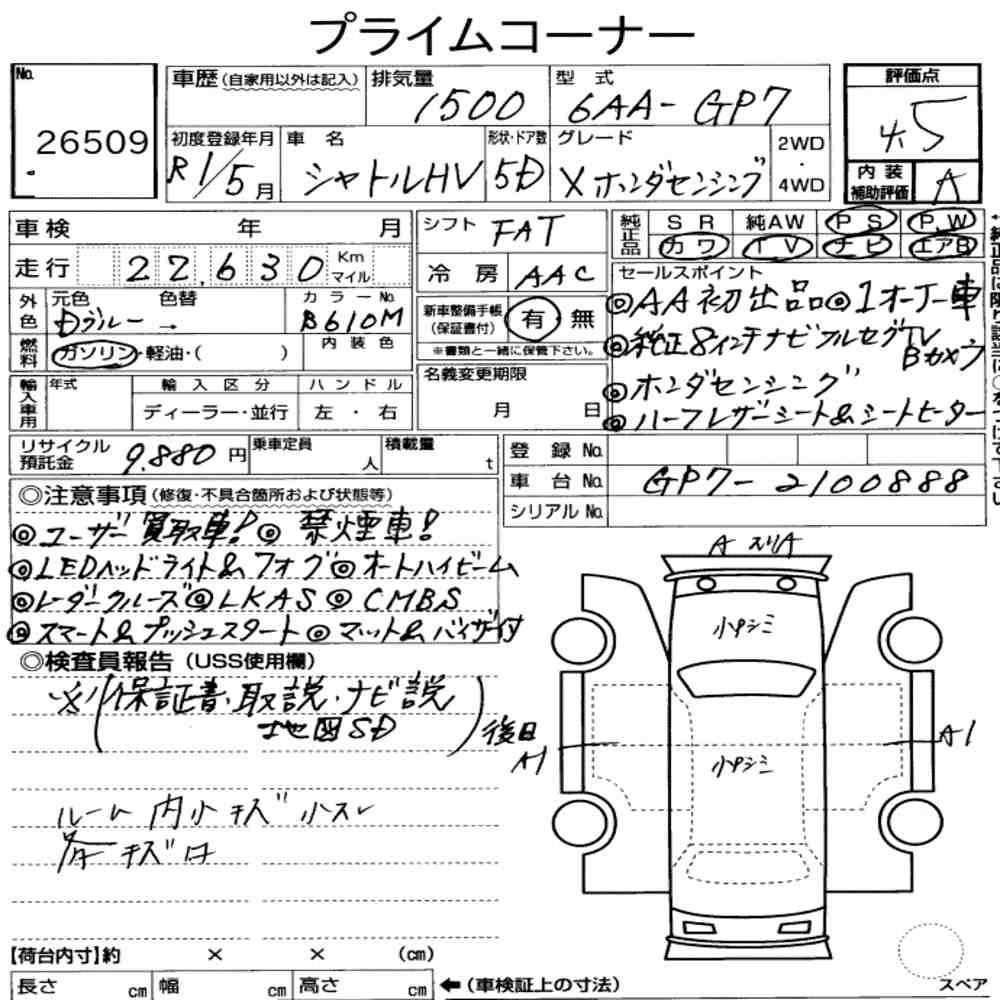 プライムコーナー
No. 26509
車歴(自家用以外は記入)
排気量 1500
型式 6AA-GP7
評価点 4.5
内装補助評価 A
初度登録年月 R1/5月
車名 シャトルHV
形状・ドア数 5D
グレード Xホンダセンシング
2WD・4WD
車検 年 月
走行 22,630 Km マイル
シフト FAT
冷房 AAC
純正品 SR 純AW PS P.W
カワ TV ナビ エアB
外色 元色 色替 カラーNo.
Dブルー → B610M
燃料 ガソリン・軽油・( ) 内装色
新車整備手帳(保証書付) 有 無
※書類と一緒に保管下さい。
セールスポイント
◎AA初出品◎1オーナー車
◎純正8インチナビフルセグTV
Bカメラ
◎ホンダセンシング
◎ハーフレザーシート&シートヒーター
輸入車用 年式 輸入区分 ハンドル
ディーラー・並行 左・右
名義変更期限
月 日
リサイクル預託金 9.880円
乗車定員 人
積載量 t
登録No.
車台No. GP7-2100888
シリアルNo.
◎注意事項(修復・不具合箇所および状態等)
◎ユーザー買取車!◎禁煙車!
◎LEDヘッドライト&フォグ◎オートハイビーム
◎レーダークルーズ◎LKAS◎CMBS
◎スマート&プッシュスタート◎マット&バイザ付
◎検査員報告(USS使用欄)
※(保証書・取説・ナビ説
地図SD)後日
ルーム内小キズ小スレ
キズ
A スリA
小Pシミ
A1
A1
小Pシミ
【荷台内寸】約 × × (cm)
長さ cm 幅 cm 高さ cm ←(車検証上の寸法)
スペア